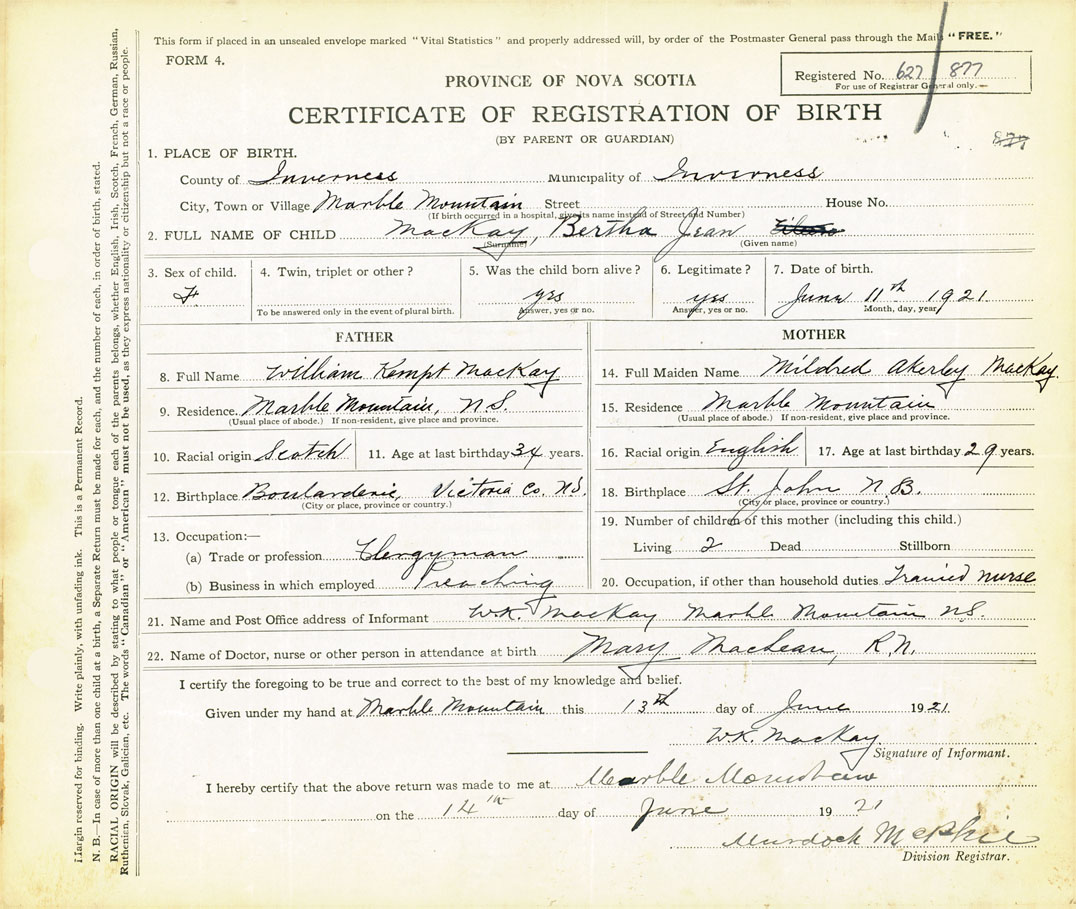 This form if placed in an unsealed envelope marked "Vital Statistics" and properly addressed will, by order of the Postmaster General pass through the Mails "FREE."
FORM 4.
Registered No. 627 877
For use of Registrar General only.
PROVINCE OF NOVA SCOTIA
CERTIFICATE OF REGISTRATION OF BIRTH
(BY PARENT OR GUARDIAN)
877
1. PLACE OF BIRTH.
County of Inverness Municipality of Inverness
City, Town or Village Marble Mountain Street House No.
(If birth occurred in a hospital, give its name instead of Street and Number)
2. FULL NAME OF CHILD MacKay, Bertha Jean
(Surname) (Given name)
3. Sex of child. 4. Twin, triplet or other? 5. Was the child born alive? 6. Legitimate? 7. Date of birth.
F yes yes June 11th 1921
To be answered only in the event of plural birth. Answer, yes or no. Answer, yes or no. Month, day, year
FATHER MOTHER
8. Full Name William Kempt MacKay
14. Full Maiden Name Mildred Akerley MacKay.
9. Residence. Marble Mountain, N.S.
(Usual place of abode.) If non-resident, give place and province.
15. Residence Marble Mountain
(Usual place of abode.) If non-resident, give place and province.
10. Racial origin Scotch 11. Age at last birthday 34 years.
16. Racial origin English 17. Age at last birthday 29 years.
12. Birthplace Boularderie, Victoria Co. N.S.
(City or place, province or country.)
18. Birthplace St. John N.B.
(City or place, province or country.)
13. Occupation:—
(a) Trade or profession Clergyman
(b) Business in which employed Preaching
19. Number of children of this mother (including this child.)
Living 2 Dead Stillborn
20. Occupation, if other than household duties Trained nurse
21. Name and Post Office address of Informant W.K. MacKay Marble Mountain N.S.
22. Name of Doctor, nurse or other person in attendance at birth Mary MacLean, R.N.
I certify the foregoing to be true and correct to the best of my knowledge and belief.
Given under my hand at Marble Mountain this 13th day of June 1921
W.K. MacKay
Signature of Informant.
I hereby certify that the above return was made to me at Marble Mountain
on the 14th day of June 1921
Murdock McPhie
Division Registrar.
Margin reserved for binding. Write plainly, with unfading ink. This is a Permanent Record.
N. B.—In case of more than one child at a birth, a Separate Return must be made for each, and the number of each, in order of birth, stated.
RACIAL ORIGIN will be described by stating to what people or tongue each of the parents belongs, whether English, Irish, Scotch, French, German, Russian,
Ruthenien, Slovak, Galician, etc. The words "Canadian" or "American" must not be used, as they express nationality or citizenship but not a race or people.